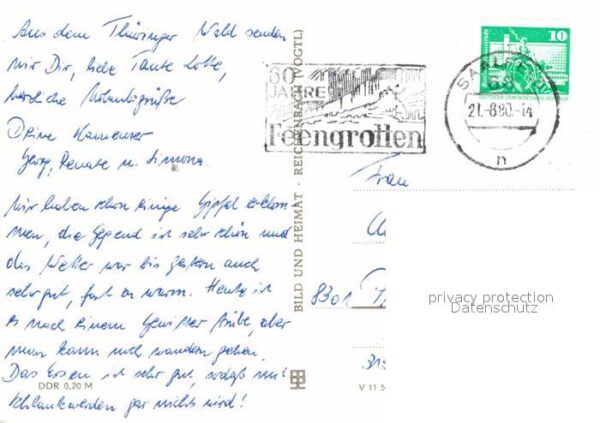 Aus dem Thüringer Wald senden
wir Dir, liebe Tante Lotte,
herzliche Urlaubsgrüße
Deine Kamenzer
Georg, Renate u. Simona.
Wir haben schon einige Gipfel erklom-
men, die Gegend ist sehr schön und
das Wetter war bis gestern auch
sehr gut, fast zu warm. Heute ist
es nach einem Gewitter trübe, aber
man kann noch wandern gehen.
Das Essen ist sehr gut, sodaß mit
Schlankwerden gar nichts wird!
DDR 0,20 M
BILD UND HEIMAT · REICHENBACH (VOGTL)
V 11 5
60 JAHRE
Feengrotten
SAALFELD
21.-8.80.-14
n
10
Frau
8301
privacy protection
Datenschutz